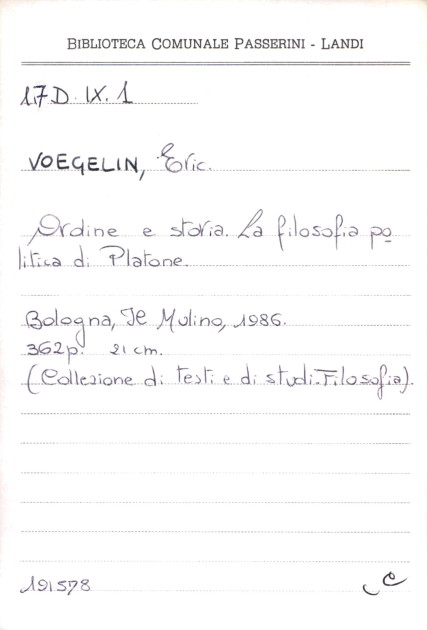 BIBLIOTECA COMUNALE PASSERINI - LANDI
17D. IX. 1
VOEGELIN, Eric.
Ordine e storia. La filosofia po
litica di Platone.
Bologna, Il Mulino, 1986.
362p. 21 cm.
(Collezione di testi e di studi. Filosofia).
191578